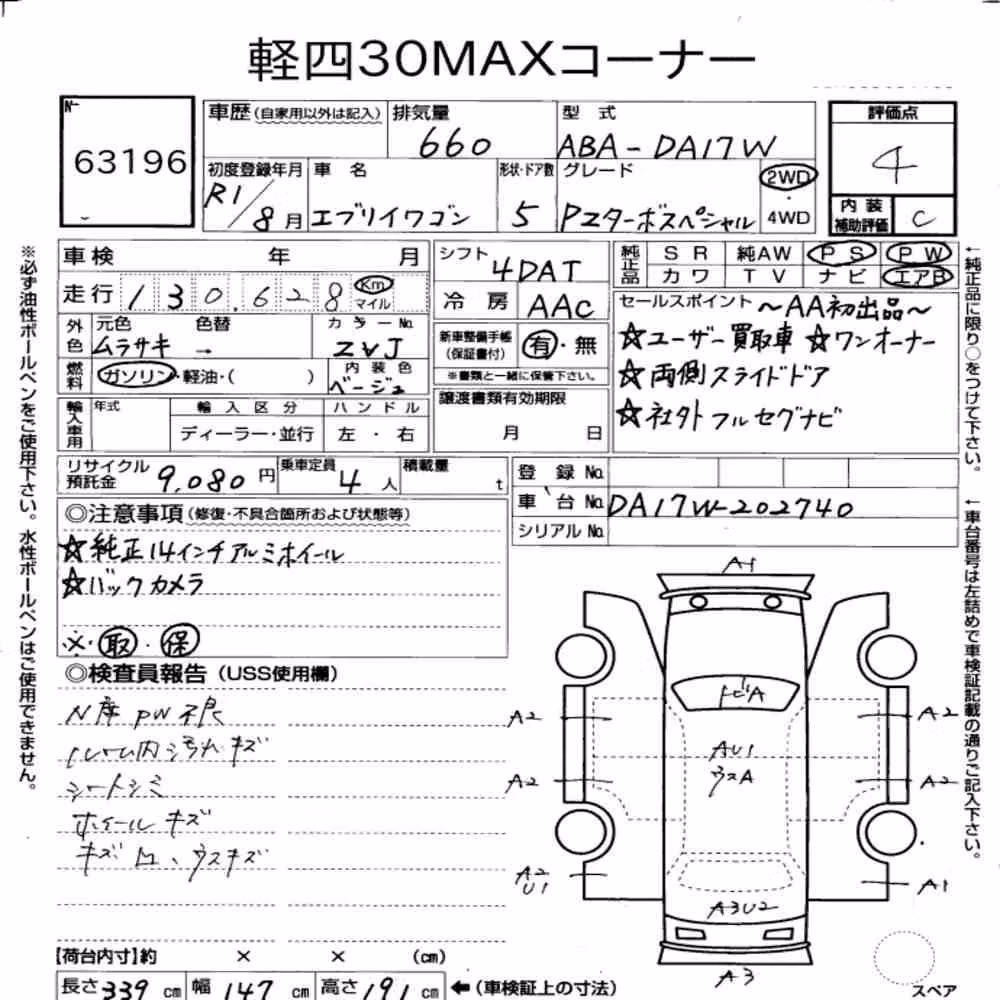 軽四30MAXコーナー
No
63196
車歴(自家用以外は記入)
排気量
660
型 式
ABA-DA17W
評価点
4
初度登録年月
R1/8月
車 名
エブリイワゴン
形状・ドア数
5
グレード
PZターボスペシャル
2WD
4WD
内装補助評価
C
車検 年 月
走行 130,628 Km マイル
シフト
4DAT
冷房 AAC
純正品
SR 純AW PS PW
カワ TV ナビ エアB
セールスポイント ~AA初出品~
☆ユーザー買取車 ☆ワンオーナー
☆両側スライドドア
☆社外フルセグナビ
外色 元色 色替 カラーNo.
ムラサキ → ZVJ
燃料 ガソリン・軽油・( )
内装色
ベージュ
新車整備手帳(保証書付) 有・無
※書類と一緒に保管下さい。
輸入車用 年式 輸入区分 ハンドル
ディーラー・並行 左・右
譲渡書類有効期限
月 日
リサイクル預託金 9,080円
乗車定員 4人
積載量 t
登録No.
車台No. DA17W-202740
シリアルNo.
◎注意事項(修復・不具合箇所および状態等)
☆純正14インチアルミホイール
☆バックカメラ
※・取・保
◎検査員報告(USS使用欄)
PW不良
シートシミ
ホイールキズ
キズ凹、ウスキズ
A1
トビA
A2
A2
AU1
ウスA
A2
A2
A2
U1
A1
A3U2
A3
スペア
【荷台内寸】約 × × (cm)
長さ339cm 幅147cm 高さ191cm ←(車検証上の寸法)
※必ず油性ボールペンをご使用下さい。水性ボールペンはご使用できません。
←純正品に限り○をつけて下さい。
←車台番号は左詰めで車検証記載の通りご記入下さい。